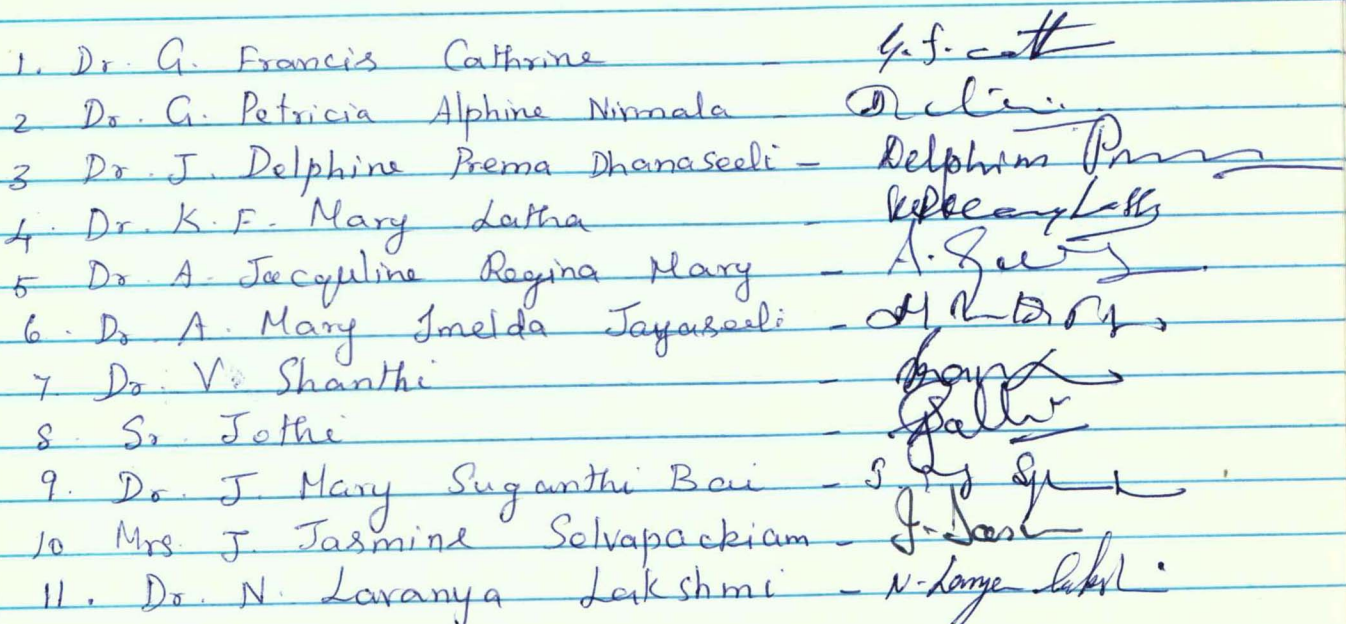 1. Dr. G. Francis Cathrine - G.f.
2 Dr. G. Petricia Alphine Nirmala -
3 Dr. J. Delphine Prema Dhanaseeli - Delphine
4. Dr. K. F. Mary Latha -
5 Dr A. Jacquline Regina Mary - A.
6. Dr A. Mary Imelda Jayaseeli -
7. Dr. V. Shanthi -
8. Sr. Jothi -
9. Dr. J. Mary Suganthi Bai -
10 Mrs. J. Jasmine Selvapackiam - J.
11. Dr. N. Lavanya Lakshmi - N.